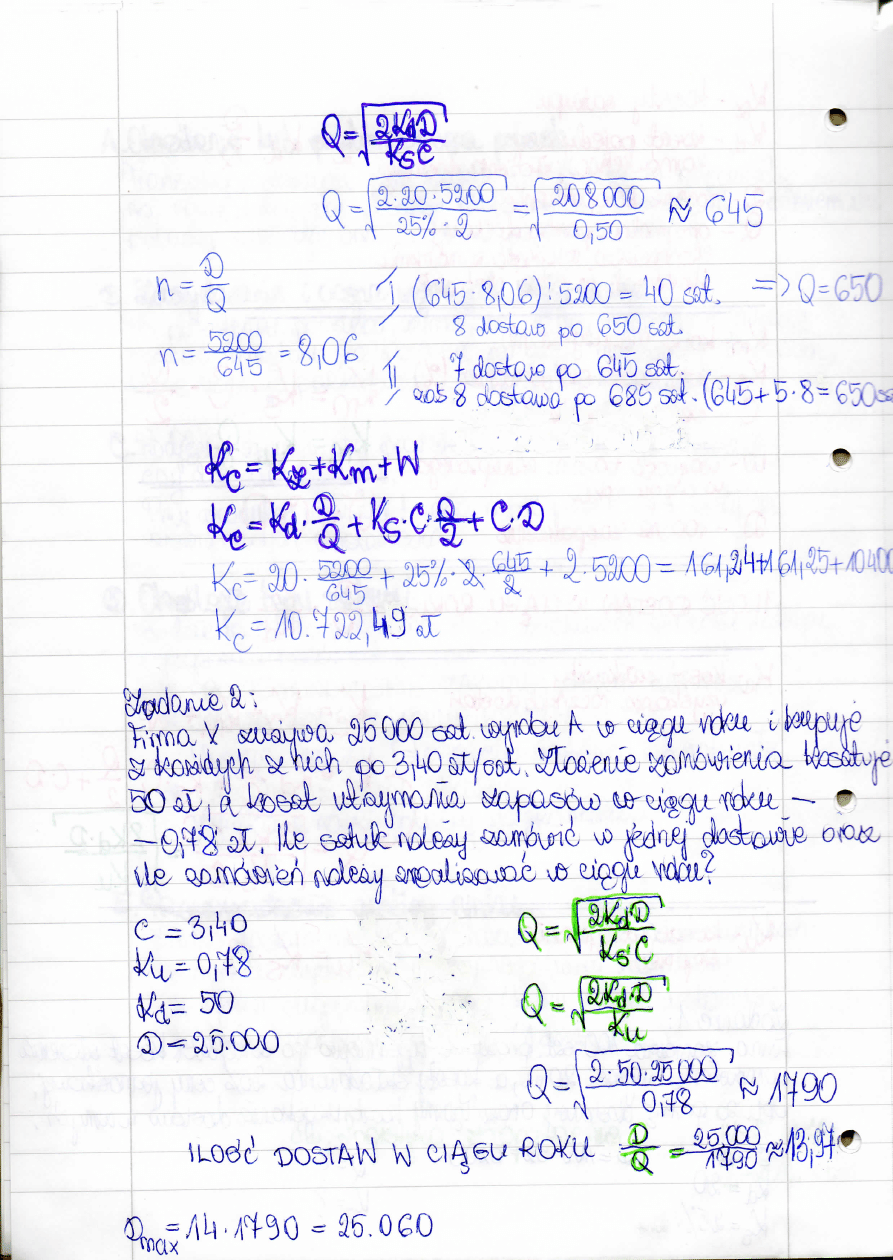 Q = √(2KdD / KsC)
Q = √(2·20·5200 / 25%·2) = √(208000 / 0,50) ≈ 645
n = D/Q
I (645·8,06):5200 = 40 szt. => Q=650
8 dostaw po 650 szt.
n = 5200/645 = 8,06
II 7 dostaw po 645 szt.
zaś 8 dostawa po 685 szt. (645+5·8=650sz
Kc = Kz + Km + W
Kc = Kd · D/Q + Ks·C·Q/2 + C·D
Kc = 20 · 5200/645 + 25%·2·645/2 + 2·5200 = 161,24+161,25+10400
Kc = 10.722,49 zł
Zadanie 2:
Firma X zużywa 25000 szt. wyrobu A w ciągu roku i kupuje
z każdych z nich po 3,40 zł/szt. Złożenie zamówienia kosztuje
50 zł, a koszt utrzymania zapasów w ciągu roku —
— 0,78 zł. Ile sztuk należy zamówić w jednej dostawie oraz
ile zamówień należy zrealizować w ciągu roku?
C = 3,40
Ku = 0,78
Kd = 50
D = 25.000
Q = √(2KdD / KsC)
Q = √(2Kd·D / Ku)
Q = √(2·50·25000 / 0,78) ≈ 1790
ILOŚĆ DOSTAW W CIĄGU ROKU D/Q = 25.000/1790 ≈ 13,97
Dmax = 14·1790 = 25.060